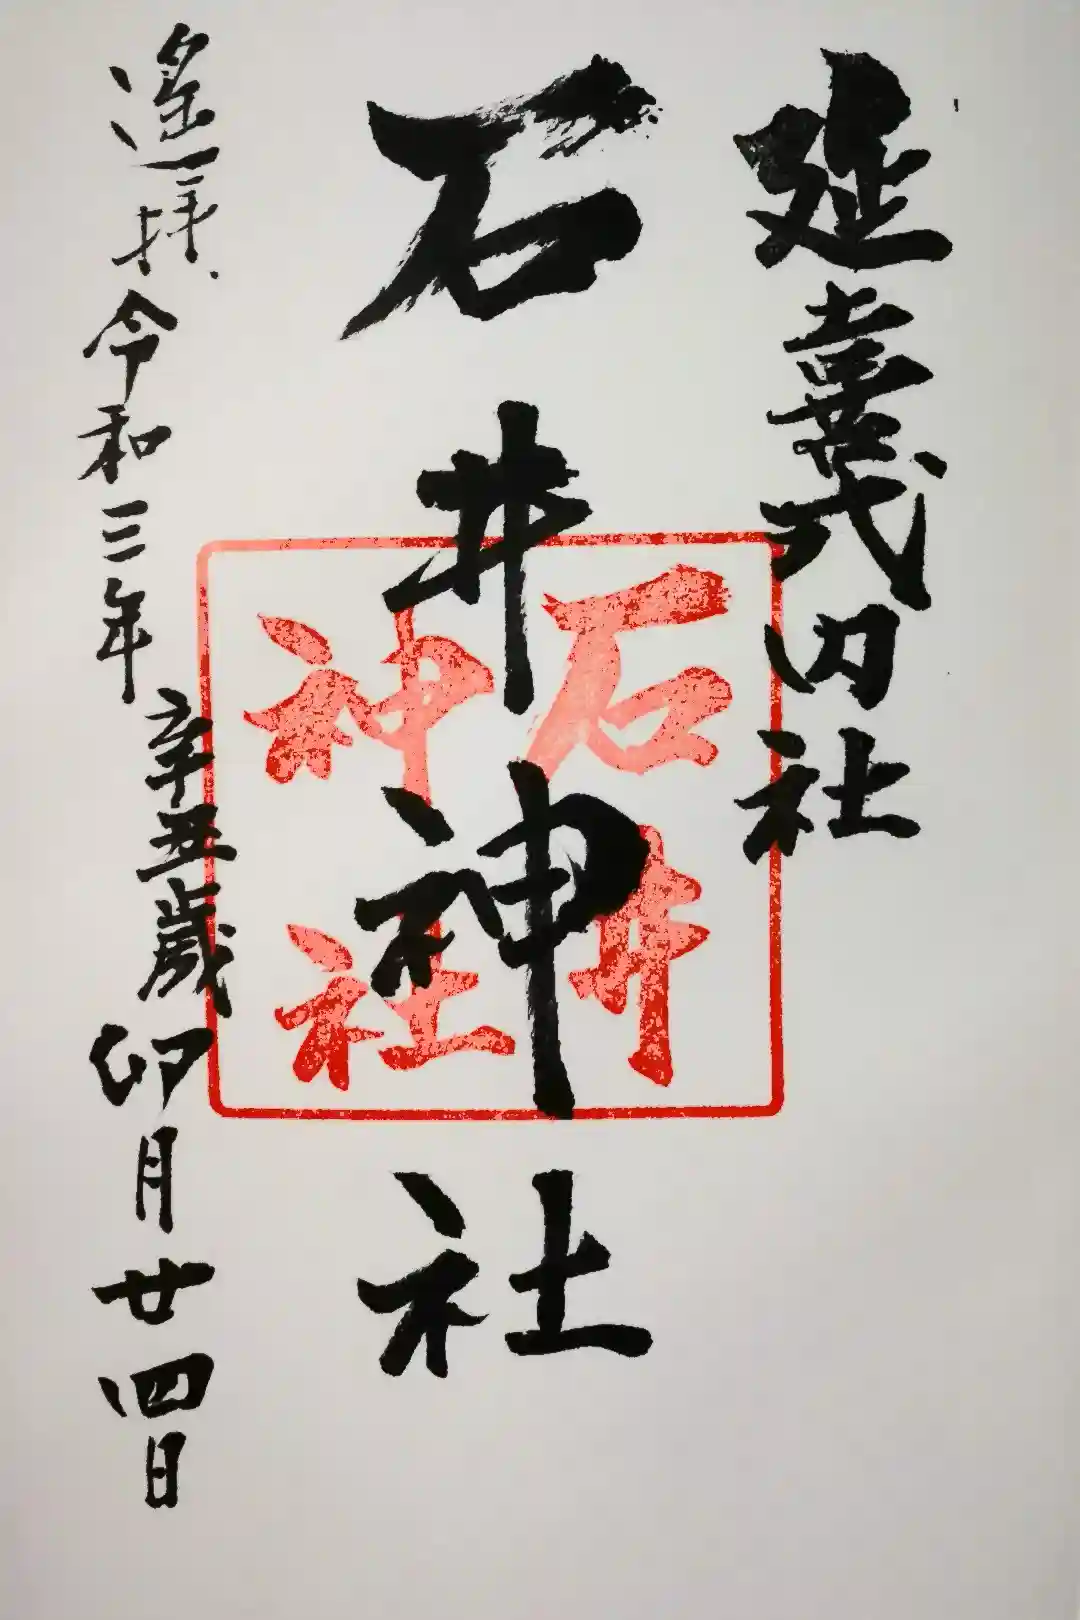 延喜式内社
石井神社
石井
神社
遙拝令和三年辛丑歳卯月廿四日